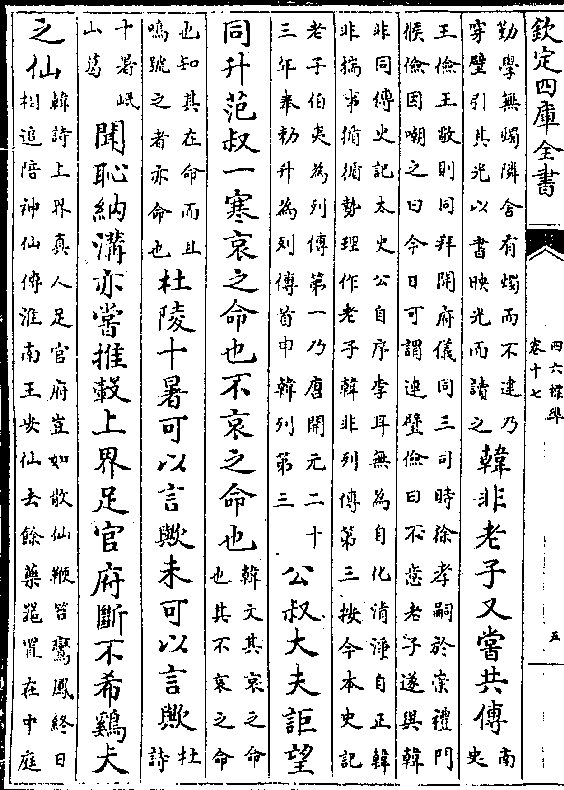 欽定四庫全書
勤學無燭隣舍有燭而不逮乃
穿壁引其光以書映光而讀之
韓非老子又嘗共傳
南
史
王儉王敬則同拜開府儀同三司時徐孝嗣於崇禮門
候儉因嘲之曰今日可謂連璧儉曰不意老子遂與韓
非同傳史記太史公自序李耳無為自化清淨自正韓
非揣事循勢理作老子韓非列傳第三按今本史記
老子伯夷為列傳第一乃唐開元二十
三年奉勑升為列傳首申韓列第三
公叔大夫詎望
同升范叔一寒哀之命也不哀之命也
韓文其哀之命
也其不哀之命
也知其在命而且
鳴號之者亦命也
杜陵十暑可以言歟未可以言歟
杜
詩
十暑岷
山葛
聞恥納溝亦嘗推轂上界足官府斷不希鷄犬
之仙
韓詩上界真人足官府豈如散仙鞭笞鸞鳳終日
相追陪神仙傳淮南王安仙去餘藥器置在中庭
四六標準
卷十七
五